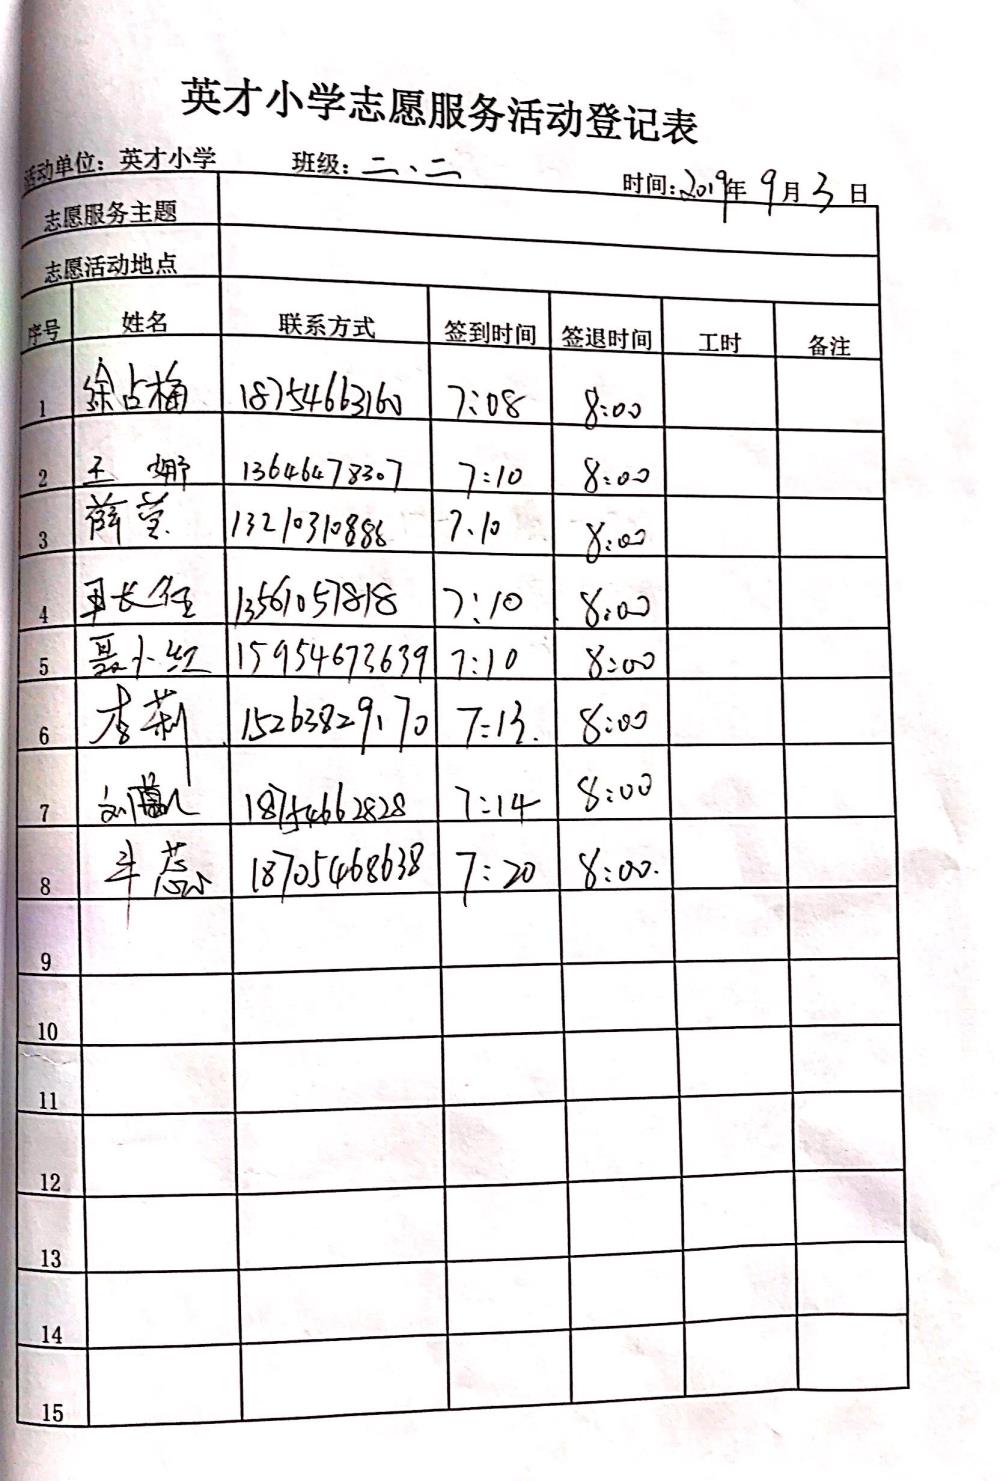 英才小学志愿服务活动登记表
活动单位：英才小学 班级：二、二 时间：2019年9月3日
志愿服务主题
志愿活动地点
序号 姓名 联系方式 签到时间 签退时间 工时 备注
1 徐占梅 18754663160 7:08 8:00
2 王娜 13646478307 7:10 8:00
3 薛莹 13210310886 7:10 8:00
4 13561057818 7:10 8:00
5 聂小红 15954673639 7:10 8:00
6 李莉 15263829170 7:13 8:00
7 18754662828 7:14 8:00
8 蕊 18705468638 7:20 8:00.
9
10
11
12
13
14
15